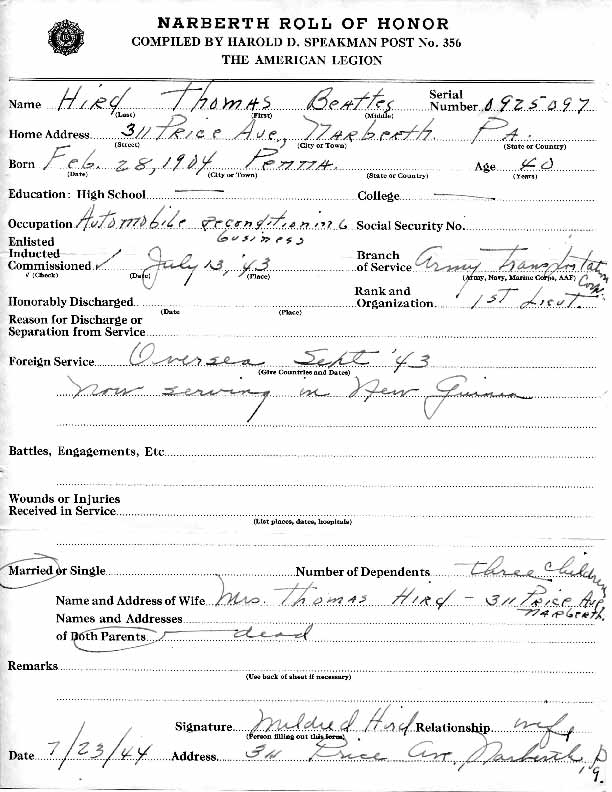 NARBERTH ROLL OF HONOR
COMPILED BY HAROLD D. SPEAKMAN POST No. 356
THE AMERICAN LEGION
Name Hird Thomas Beattes Serial Number 0925097
(Last) (First) (Middle)
Home Address 311 Price Ave, Narberth. PA.
(Street) (City or Town) (State or Country)
Born Feb. 28, 1904 Penna. Age 40
(Date) (City or Town) (State or Country) (Years)
Education: High School — College —
Occupation Automobile reconditioning business Social Security No.
Enlisted
Inducted
Commissioned ✓ July 13, '43 Branch of Service Army Transportation Corp.
✓ (Check) (Date) (Place) (Army, Navy, Marine Corps, AAF)
Honorably Discharged Rank and Organization 1st Lieut.
(Date (Place)
Reason for Discharge or
Separation from Service
Foreign Service Oversea Sept '43
(Give Countries and Dates)
Now serving in New Guinea
Battles, Engagements, Etc
Wounds or Injuries
Received in Service
(List places, dates, hospitals)
Married or Single Number of Dependents three children
Name and Address of Wife Mrs. Thomas Hird - 311 Price Ave Narberth.
Names and Addresses
of Both Parents - dead
Remarks
(Use back of sheet if necessary)
Signature Mildred Hird Relationship wife
(Person filling out this form)
Date 7/23/44 Address 311 Price Ave, Narberth, Pa.